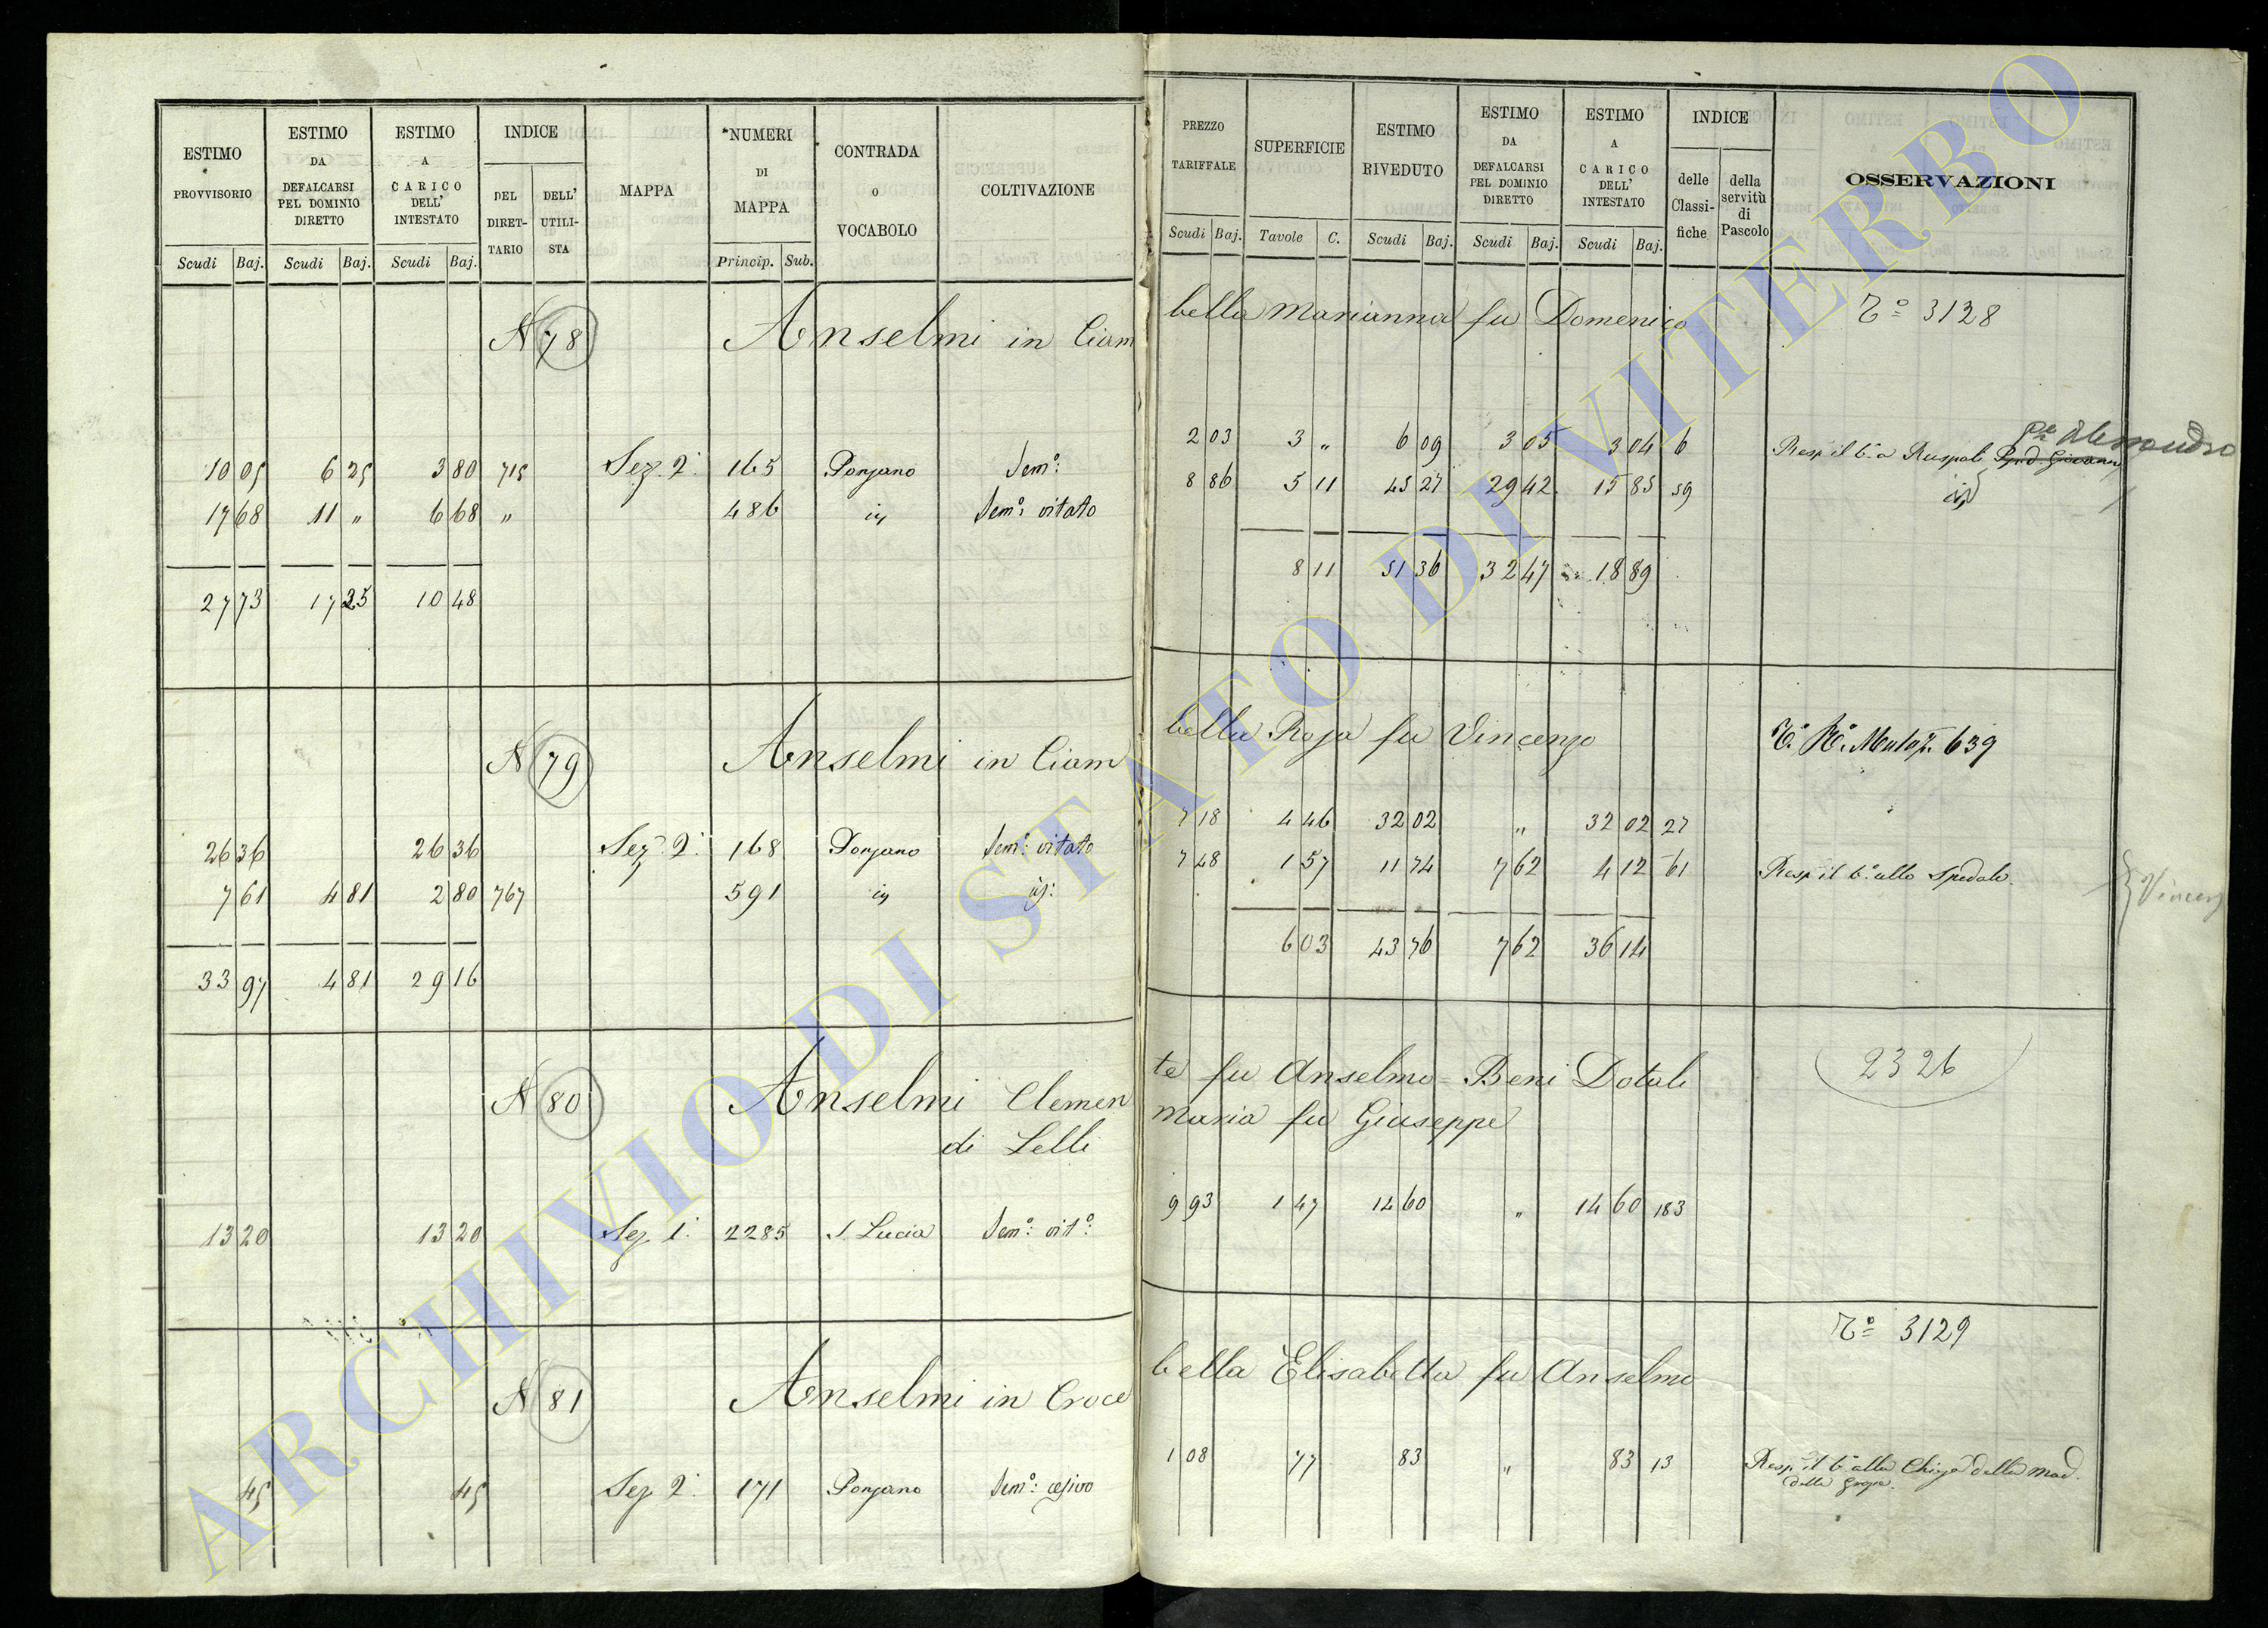 ESTIMO PROVVISORIO Scudi Baj.
ESTIMO DA DEFALCARSI PEL DOMINIO DIRETTO Scudi Baj.
ESTIMO A CARICO DELL' INTESTATO Scudi Baj.
INDICE DEL DIRET- TARIO DELL' UTILI- STA
MAPPA
NUMERI DI MAPPA Princip. Sub.
CONTRADA o VOCABOLO
COLTIVAZIONE
PREZZO TARIFFALE Scudi Baj.
SUPERFICIE Tavole C.
ESTIMO RIVEDUTO Scudi Baj.
ESTIMO DA DEFALCARSI PEL DOMINIO DIRETTO Scudi Baj.
ESTIMO A CARICO DELL' INTESTATO Scudi Baj.
INDICE delle Classi- fiche della servitù di Pascolo
OSSERVAZIONI
N 78 Anselmi in Ciam bella Marianna fu Domenico To 3128
10 05 6 25 3 80 715 Sez. 2a 165 Ponzano Semo: 2 03 3 " 6 09 3 05 3 04 6 Resp. il ba a Ruspoli Alessandro
17 68 11 " 6 68 " 486 id Semo: vitato 8 86 5 11 45 27 29 42 15 85 59 id
27 73 17 25 10 48 8 11 51 36 32 47 18 89
N 79 Anselmi in Ciam bella Rosa fu Vincenzo 639
26 36 26 36 Sez. 2a 168 Ponzano Semo: vitato 7 18 4 46 32 02 " 32 02 27
7 61 4 81 2 80 767 591 id id: 7 48 1 57 11 74 7 62 4 12 61 Resp. il ba allo Spedale.
33 97 4 81 29 16 6 03 43 76 7 62 36 14
N 80 Anselmi Clemen te fu Anselmo = Beni Dotali 2326
di Lelli Maria fu Giuseppe
13 20 13 20 Sez. 1a 2285 S. Lucia Semo: vito: 9 93 1 47 14 60 " 14 60 183
To 3129
N 81 Anselmi in Croce bella Elisabetta fu Anselmo
45 45 Sez. 2a 171 Ponzano Semo: cesivo 1 08 77 83 " 83 13 Resp. il ba alla Chiesa della Mad.
delle
ARCHIVIO DI STATO DI VITERBO